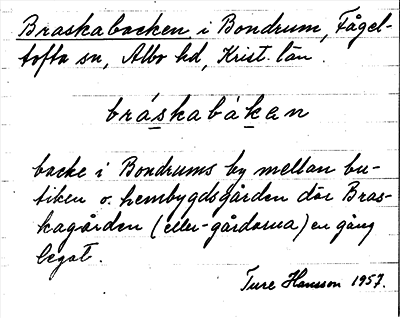 Braskabacken i Bondrum, Fågel-
tofta sn, Albo hd, Krist. län.
bráskabáken
backe i Bondrums by mellan bu-
tiken o. hembygdsgården där Bras-
kagården (eller -gårdarna) en gång
legat.
Ture Hansson 1957.